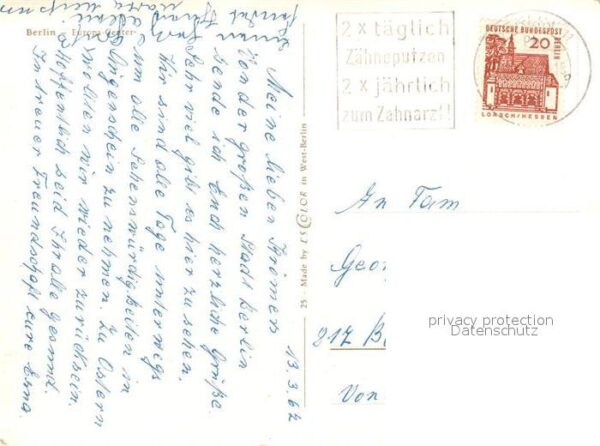 Berlin
Europa Center
13.3.67
Meine lieben Krömer
Von der großen Stadt Berlin
sende ich Euch herzliche Grüße.
Sehr viel gibt es hier zu sehen.
Wir sind alle Tage unterwegs
um alle Sehenswürdigkeiten in
Augenschein zu nehmen. Zu Ostern
wollten wir wieder zurück sein.
Hoffentlich seid Ihr alle gesund.
In treuer Freundschaft eure Erna
25 - Made by ESCOLOR in West-Berlin
2 x täglich
Zähneputzen
2 x jährlich
zum Zahnarzt!
DEUTSCHE BUNDESPOST
BERLIN
20
LORSCH/HESSEN
An Fam
Geor
217 B
Von
privacy protection
Datenschutz